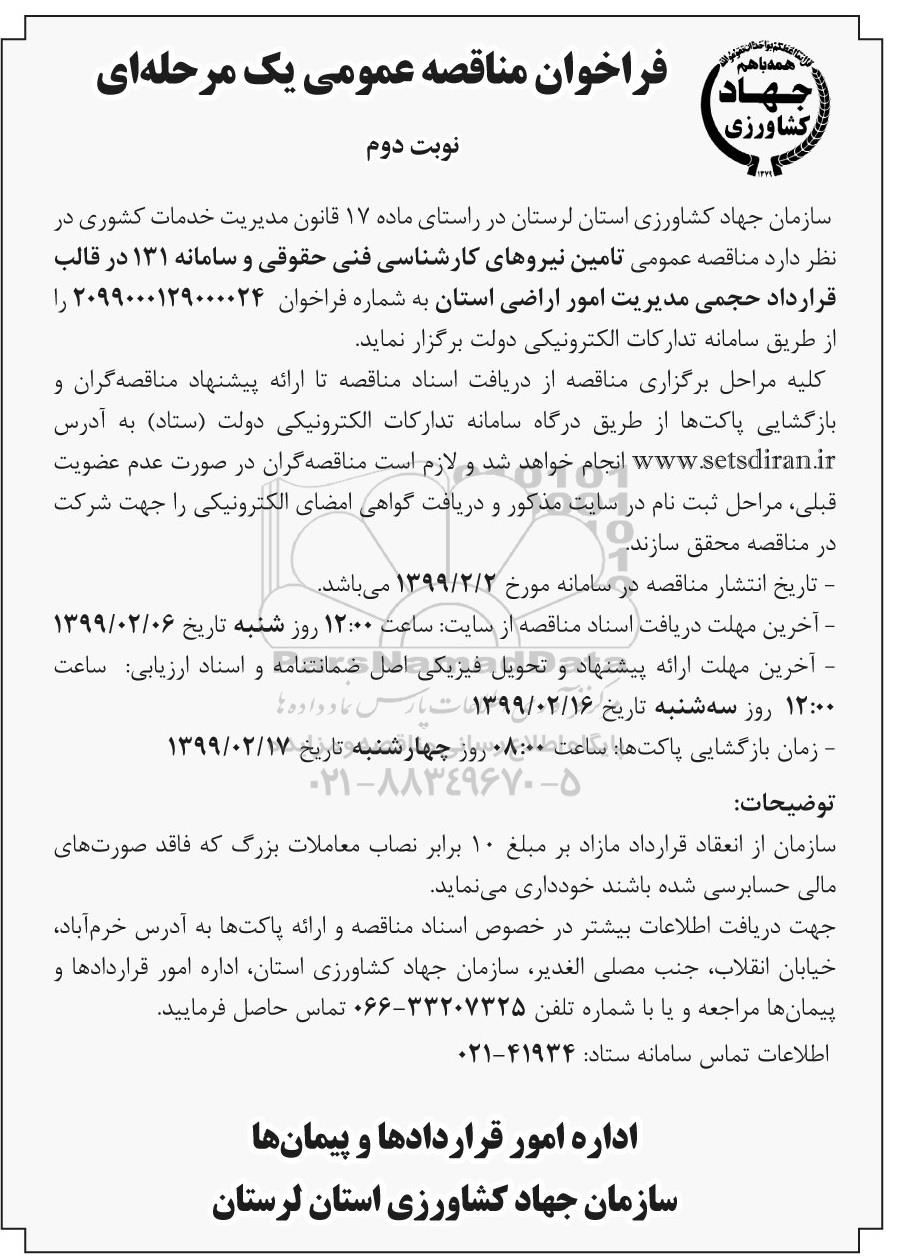 فراخوان مناقصه عمومی یک مرحله‌ای
همه باهم
جهاد
کشاورزی
۱۳۷۹
نوبت دوم
سازمان جهاد کشاورزی استان لرستان در راستای ماده ۱۷ قانون مدیریت خدمات کشوری در
نظر دارد مناقصه عمومی تامین نیروهای کارشناسی فنی حقوقی و سامانه ۱۳۱ در قالب
قرارداد حجمی مدیریت امور اراضی استان به شماره فراخوان ۲۰۹۹۰۰۰۱۲۹۰۰۰۰۲۴ را
از طریق سامانه تدارکات الکترونیکی دولت برگزار نماید.
کلیه مراحل برگزاری مناقصه از دریافت اسناد مناقصه تا ارائه پیشنهاد مناقصه‌گران و
بازگشایی پاکت‌ها از طریق درگاه سامانه تدارکات الکترونیکی دولت (ستاد) به آدرس
www.setsdiran.ir انجام خواهد شد و لازم است مناقصه‌گران در صورت عدم عضویت
قبلی، مراحل ثبت نام در سایت مذکور و دریافت گواهی امضای الکترونیکی را جهت شرکت
در مناقصه محقق سازند.
- تاریخ انتشار مناقصه در سامانه مورخ ۱۳۹۹/۲/۲ می‌باشد.
- آخرین مهلت دریافت اسناد مناقصه از سایت: ساعت ۱۲:۰۰ روز شنبه تاریخ ۱۳۹۹/۰۲/۰۶
- آخرین مهلت ارائه پیشنهاد و تحویل فیزیکی اصل ضمانتنامه و اسناد ارزیابی: ساعت
۱۲:۰۰ روز سه‌شنبه تاریخ ۱۳۹۹/۰۲/۱۶
- زمان بازگشایی پاکت‌ها: ساعت ۰۸:۰۰ روز چهارشنبه تاریخ ۱۳۹۹/۰۲/۱۷
ParsNamadData
۰۲۱-۸۸۳۴۹۶۷۰-۵
توضیحات:
سازمان از انعقاد قرارداد مازاد بر مبلغ ۱۰ برابر نصاب معاملات بزرگ که فاقد صورت‌های
مالی حسابرسی شده باشند خودداری می‌نماید.
جهت دریافت اطلاعات بیشتر در خصوص اسناد مناقصه و ارائه پاکت‌ها به آدرس خرم‌آباد،
خیابان انقلاب، جنب مصلی الغدیر، سازمان جهاد کشاورزی استان، اداره امور قراردادها و
پیمان‌ها مراجعه و یا با شماره تلفن ۳۳۲۰۷۳۲۵-۰۶۶ تماس حاصل فرمایید.
اطلاعات تماس سامانه ستاد: ۴۱۹۳۴-۰۲۱
اداره امور قراردادها و پیمان‌ها
سازمان جهاد کشاورزی استان لرستان